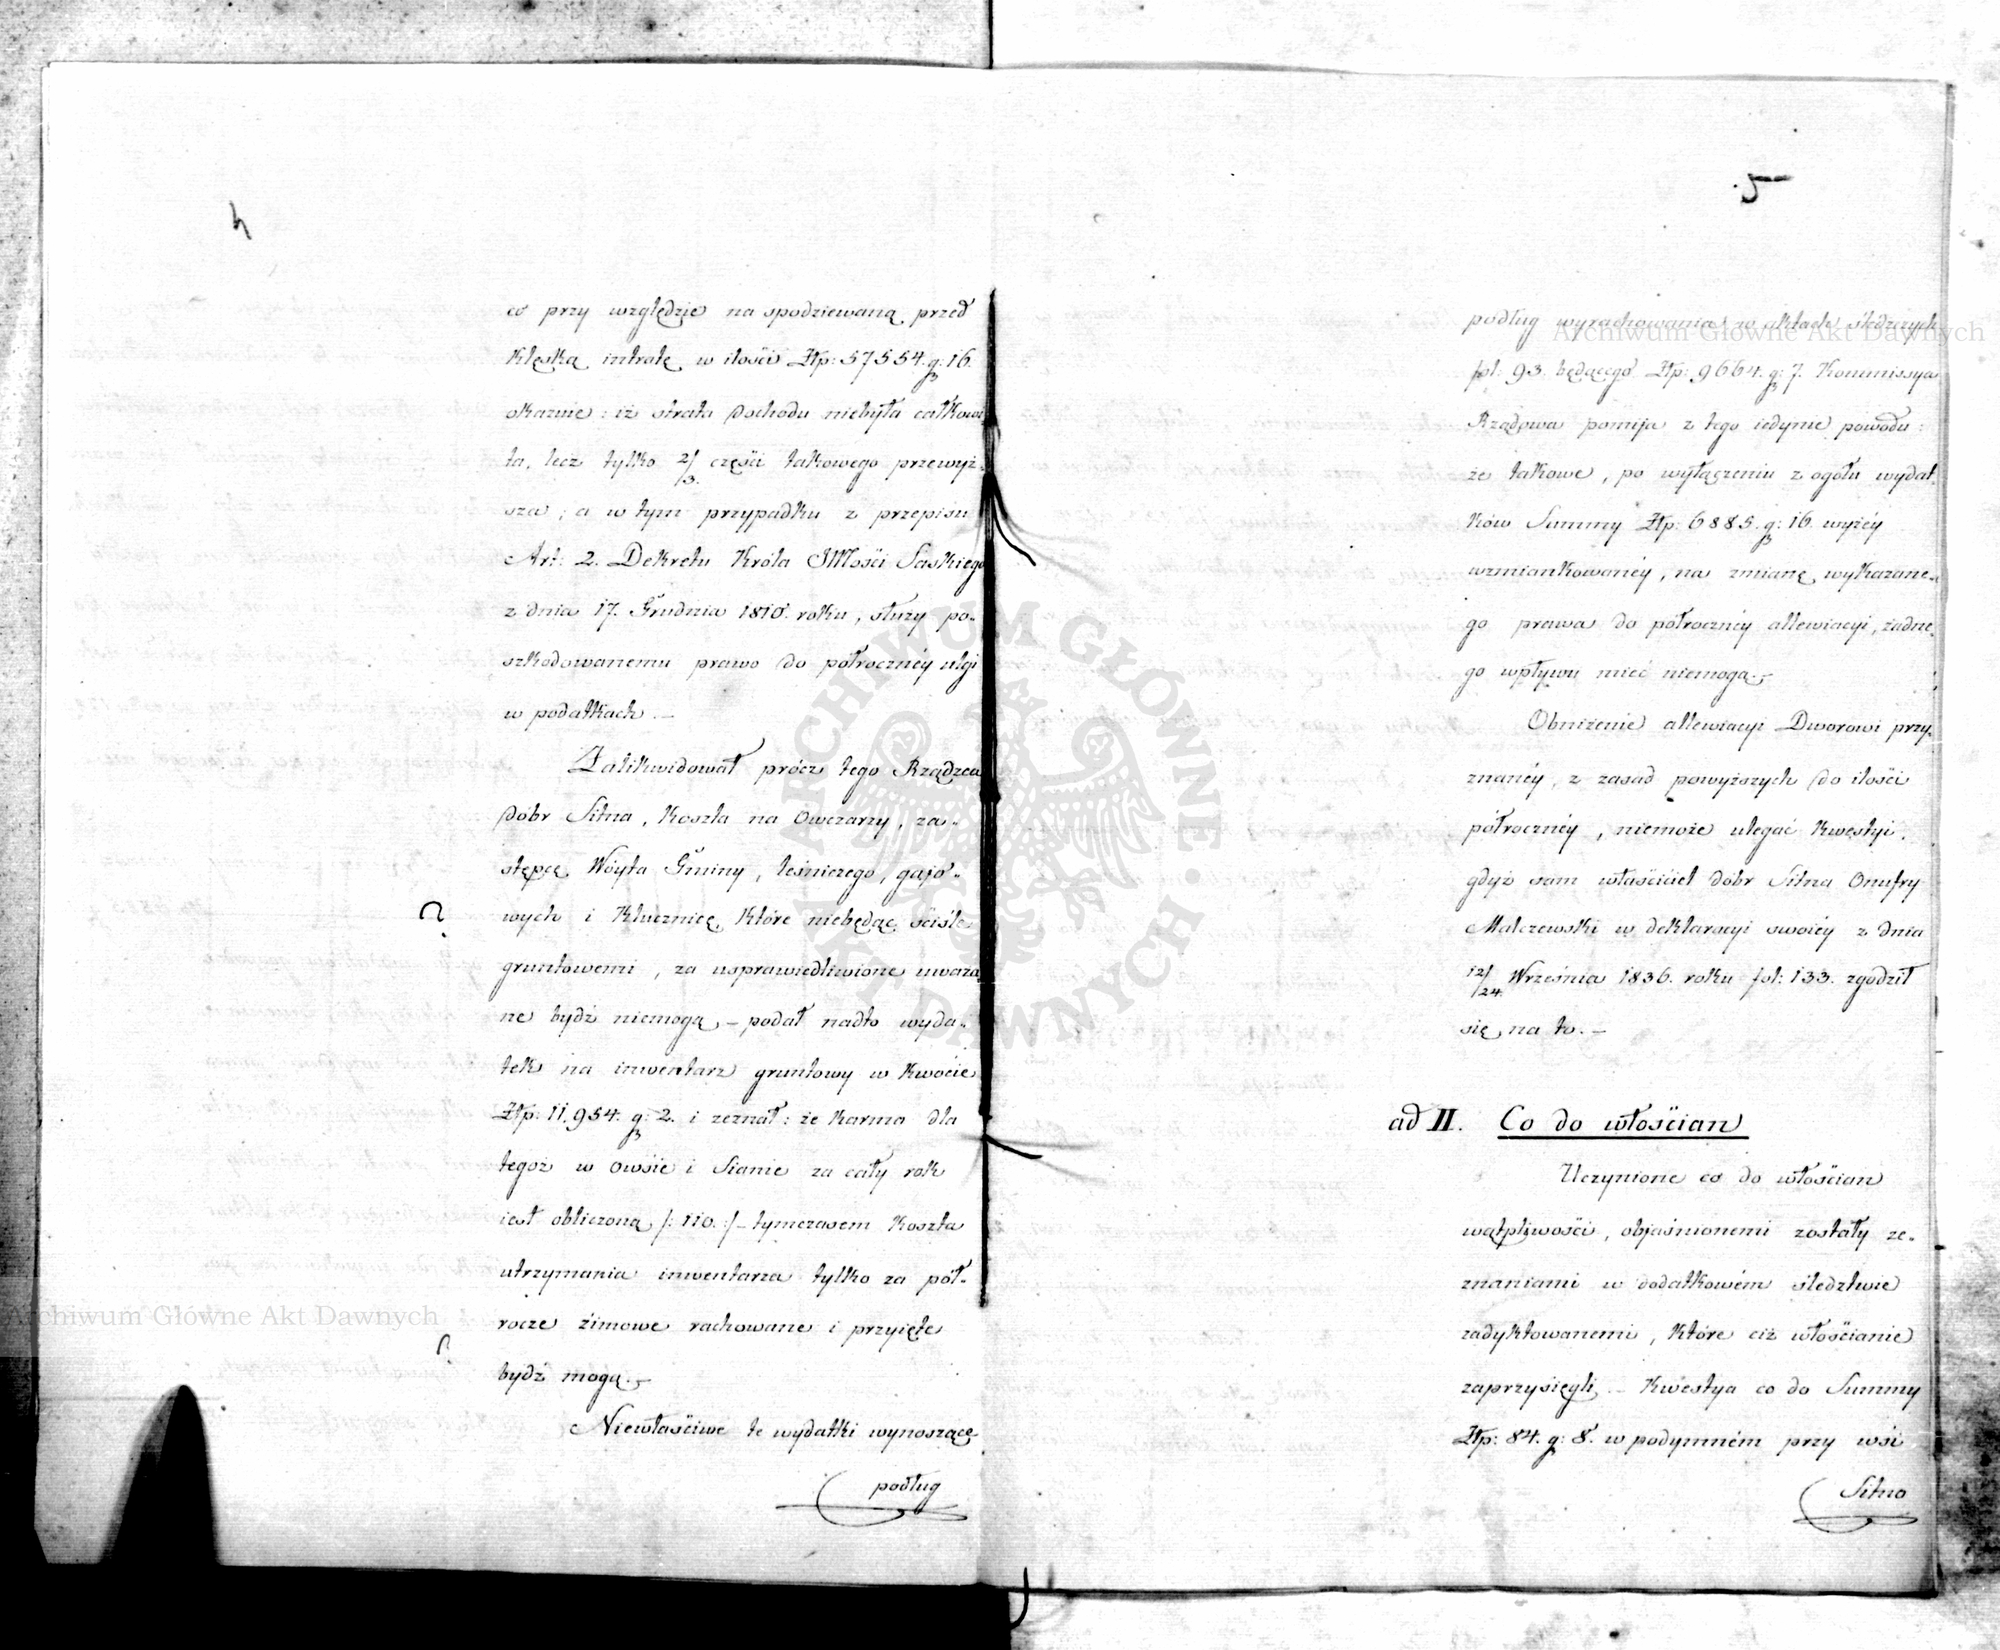 4
co przy względzie na spodziewaną przed
klęską intratę w ilości Złp: 57554. g: 16.
okazuie: iż strata dochodu niebyła całkowi
ta, lecz tylko 2/3. części takowego przewyż-
sza; a w tym przypadku z przepisu
Art: 2. Dekretu Króla JMości Saskiego
z dnia 17. Grudnia 1810. roku, służy po-
szkodowanemu prawo do półrocznéy ulgi
w podatkach. —
Zalikwidował prócz tego Rządzca
dóbr Sitna, koszta na owczarzy, za-
stępcę Wóyta Gminy, leśniczego, gajo-
wych i klucznicę, które niebędąc ściśle
gruntowemi, za usprawiedliwione uważa
ne bydź niemogą — podał nadto wyda-
tek na inwentarz gruntowy w kwocie
Złp: 11,954. g: 2. i zeznał: że karma dla
tegoż w owsie i sianie za cały rok
iest obliczoną /: 110. :/ — tymczasem koszta
utrzymania inwentarza tylko za pół-
rocze zimowe rachowane i przyięte
bydź mogą. —
Niewłaściwe te wydatki wynoszące
podług
5
podług wyrachowania w aktach śledczych
fol: 93. będącego Złp: 9664. g: 7. Kommissya
Rządowa pomija z tego iedynie powodu:
że takowe, po wyłączeniu z ogółu wydat
ków Summy Złp: 6885. g: 16. wyżéy
wzmiankowanéy, na zmianę wykazane-
go prawa do półrocznéy allewiacyi, żadne-
go wpływu mieć niemogą. —
Obniżenie allewiacyi Dworowi przy-
znanéy, z zasad powyższych do ilości
półrocznéy, niemoże ulegać kwestyi,
gdyż sam właściciel dóbr Sitna Onufry
Malczewski w deklaracyi swoiéy z dnia
12/24. Września 1836. roku fol: 133. zgodził
się na to. —
ad II. Co do włościan
Uczynione co do włościan
wątpliwości, objaśnionemi zostały ze-
znaniami w dodatkowém śledztwie
zadyktowanemi, które ciż włościanie
zaprzysięgli. — Kwestya co do Summy
Złp: 84. g: 8. w podymném przy wsi
Sitno
Archiwum Główne Akt Dawnych
Archiwum Główne Akt Dawnych
ARCHIWUM GŁÓWNE AKT DAWNYCH